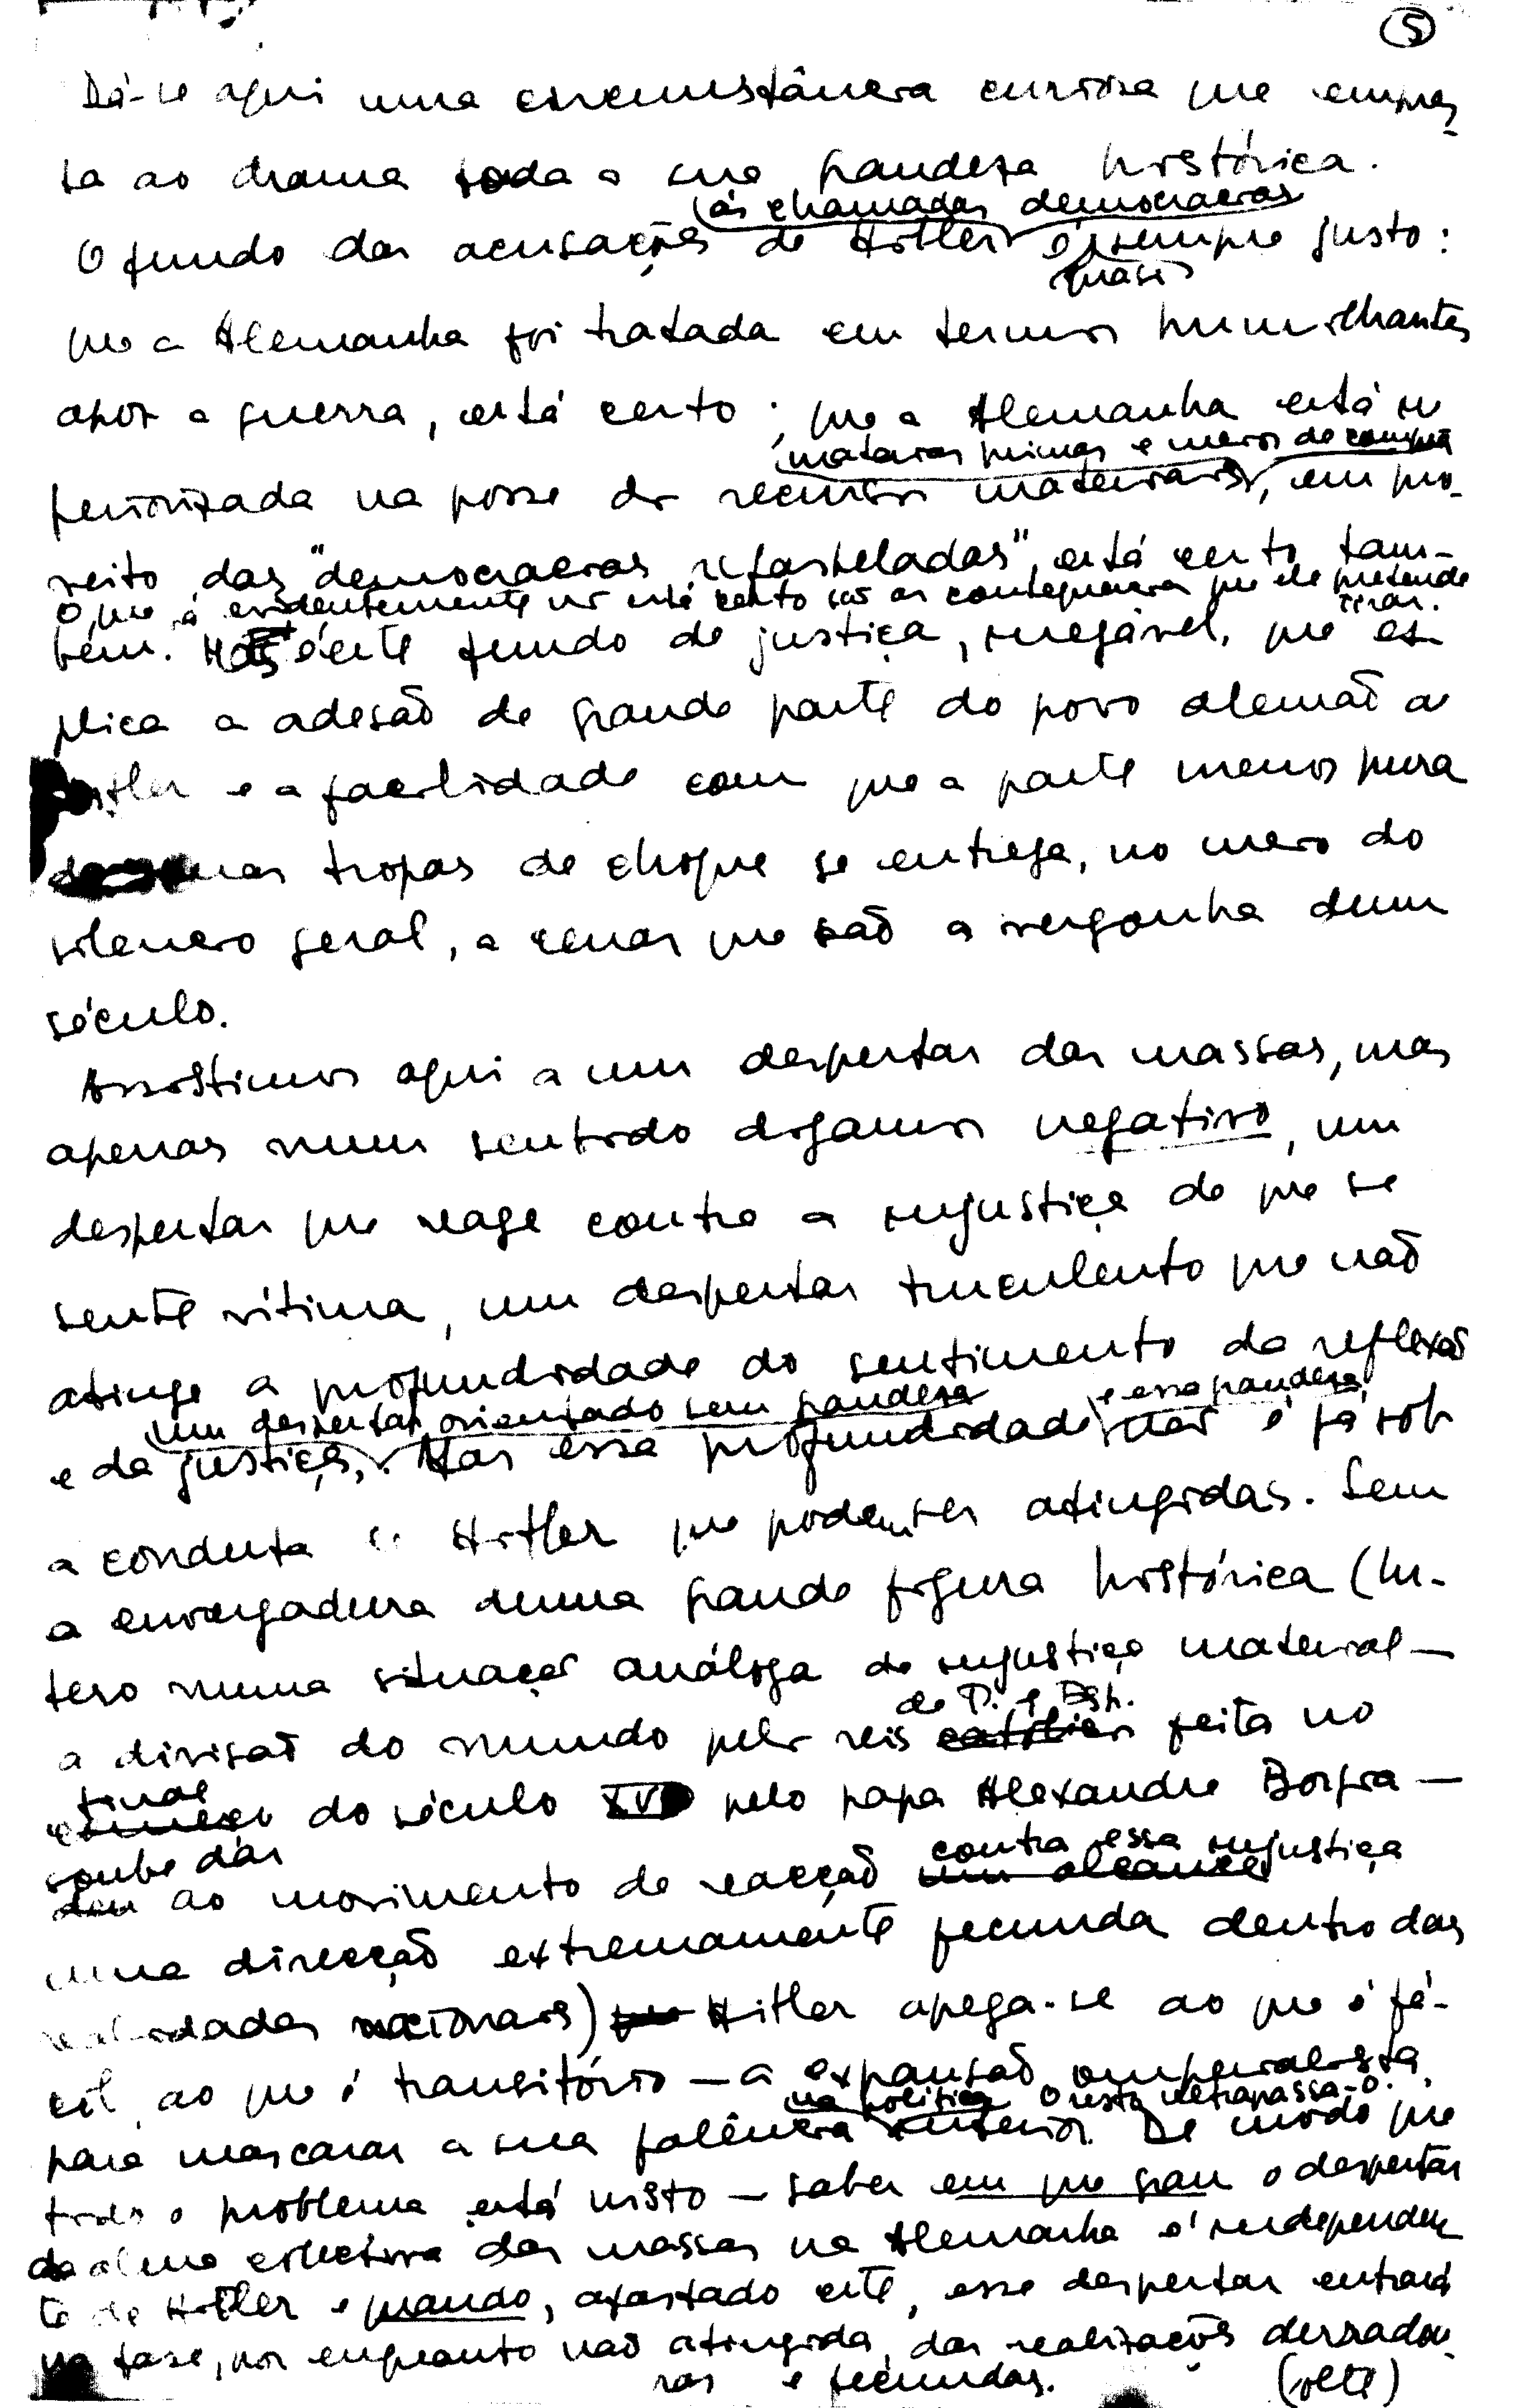 5
Dá-se aqui uma circunstância curiosa que empres-
ta ao drama toda a sua grandeza histórica.
(às chamadas democracias
O fundo das acusações de Hitler é sempre justo:
quasi
que a Alemanha foi tratada em termos humilhantes
após a guerra, está certo; que a Alemanha está in
matérias primas e meios de compra
feriorizada na posse de recursos materiais, em pro-
veito das "democracias refasteladas", está certo tam-
o que é evidentemente não está certo são as consequências que ele pretende
tirar.
bém. Mas é este fundo de justiça, inegável, que ex-
plica a adesão de grande parte do povo alemão a
Hitler e a facilidade com que a parte menos pura
das suas tropas de choque se entrega, no meio do
silêncio geral, a cenas que são a vergonha dum
século.
Assistimos aqui a um despertar das massas, mas
apenas num sentido digamos negativo, um
despertar que reage contra a injustiça de que se
sente vítima, um despertar truculento que não
atinge a profundidade do sentimento da reflexão
um despertar orientado sem grandeza
e essa grandeza
e da justiça. Mas essa profundidade não é já sob
a conduta de Hitler que podem ser atingidas. Sem
a envergadura duma grande figura histórica (Lu-
tero numa situação análoga de injustiça material —
de P. e Esp.
a divisão do mundo pelos reis católicos feita no
final
começo do século XV pelo papa Alexandre Borgia —
soube dar
contra essa injustiça
deu ao movimento de reacção um alcance
uma direcção extremamente fecunda dentro das
realidades nacionais) que Hitler apega-se ao que é fá-
cil, ao que é transitório — a expansão imperialista,
na política
O resto ultrapassa-o.
para mascarar a sua falência interior. De modo que
todo o problema está nisto — saber em que grau o despertar
da alma colectiva das massas na Alemanha é independen
te de Hitler e quando, afastado este, esse despertar entrará
na fase, por enquanto não atingida, das realizações duradou
ras e fecundas.
(volte)